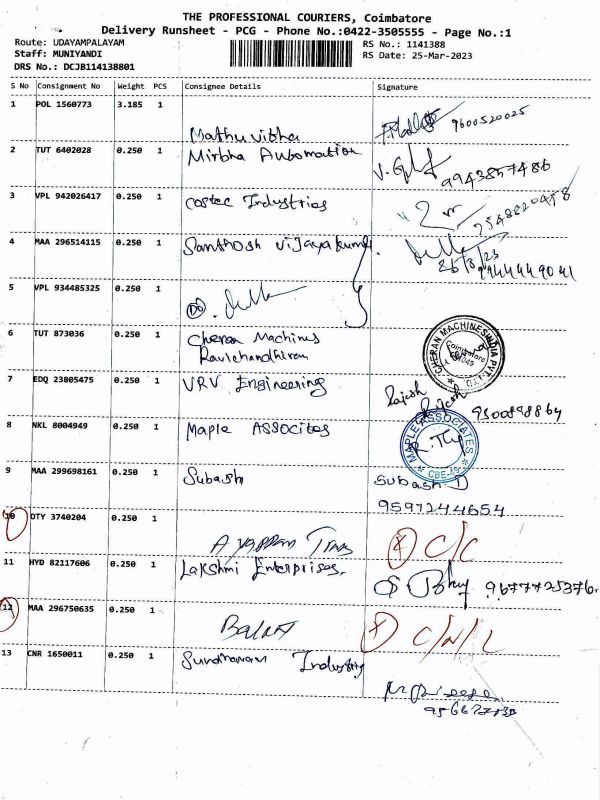 THE PROFESSIONAL COURIERS, Coimbatore
Delivery Runsheet - PCG - Phone No.:0422-3505555 - Page No.:1
Route: UDAYAMPALAYAM
RS No.: 1141388
Staff: MUNIYANDI
RS Date: 25-Mar-2023
DRS No.: DCJB114138801
S No Consignment No Weight PCS Consignee Details Signature
1 POL 1560773 3.185 1
Mathu vibha 9600520025
2 TUT 6402028 0.250 1 Mirbha Automation
9943857486
3 VPL 942026417 0.250 1 Costec Industries
4 MAA 296514115 0.250 1 Santhosh vijayakumar
9944449041
5 VPL 934485325 0.250 1
DO
6 TUT 873036 0.250 1 Cheran Machines
Ravichandhiran
CHERAN MACHINES INDIA PVT. LTD.
Coimbatore
7 EDQ 23805475 0.250 1 VRV Engineering
Rajesh
Rajesh
8 NKL 8004949 0.250 1 Maple ASSOCites
MAPLE ASSOCIATES
CBE-49
9 MAA 299698161 0.250 1 Subash
Subash D
9597244654
10 OTY 3740204 0.250 1
Ayappan Trans X C/C
11 HYD 82117606 0.250 1 Lakshmi Enterprises.
9677725376.
12 MAA 296750635 0.250 1
Balaji X C/N/L
13 CNR 1650011 0.250 1 Industry